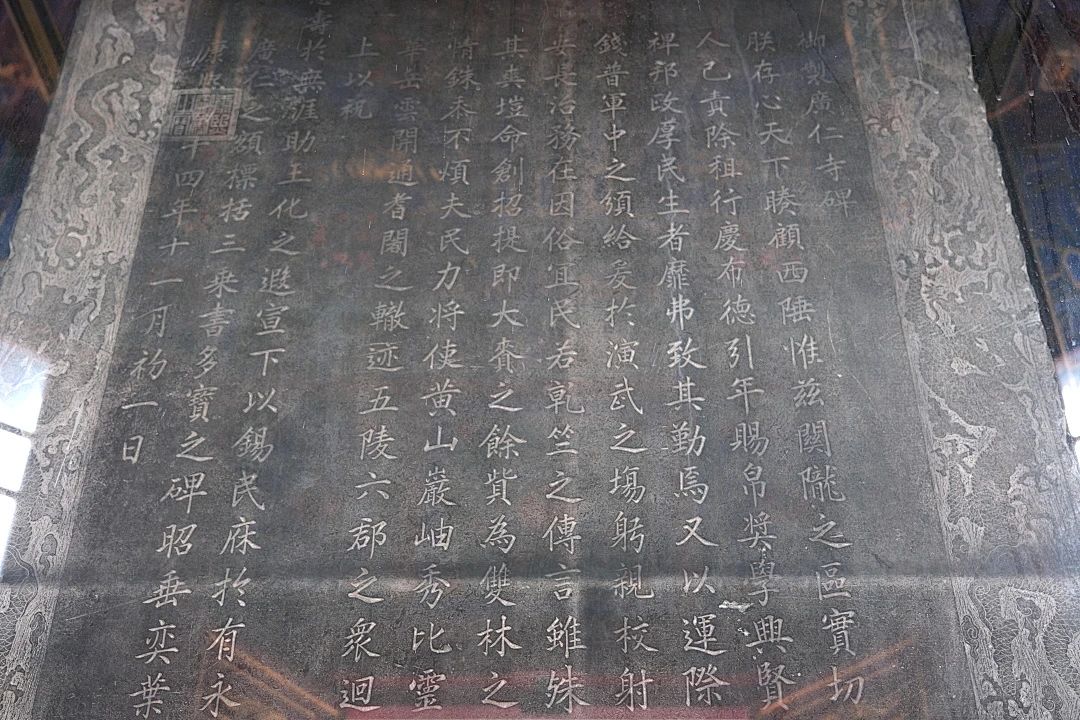 御製廣仁寺碑
朕存心天下睠顧西陲惟茲關隴之區實切
人己責除租行慶布德引年賜帛奬學興賢
裨邦政厚民生者靡弗致其勤焉又以運際
錢普軍中之須給爰於演武之場躬親校射
長治務在因俗宜民若乾竺之傳言雖殊
其爽塏命創招提即大賚之餘貲為雙林之
惰銖黍不煩夫民力將使黄山巖岫秀比靈
華岳雲開通耆闍之轍迹五陵六郡之衆迴
上以祝
壽於無涯助王化之遐宣下以錫民庥於有永
廣仁之額標括三乘書多寶之碑昭垂奕葉
康熙四十四年十一月初一日